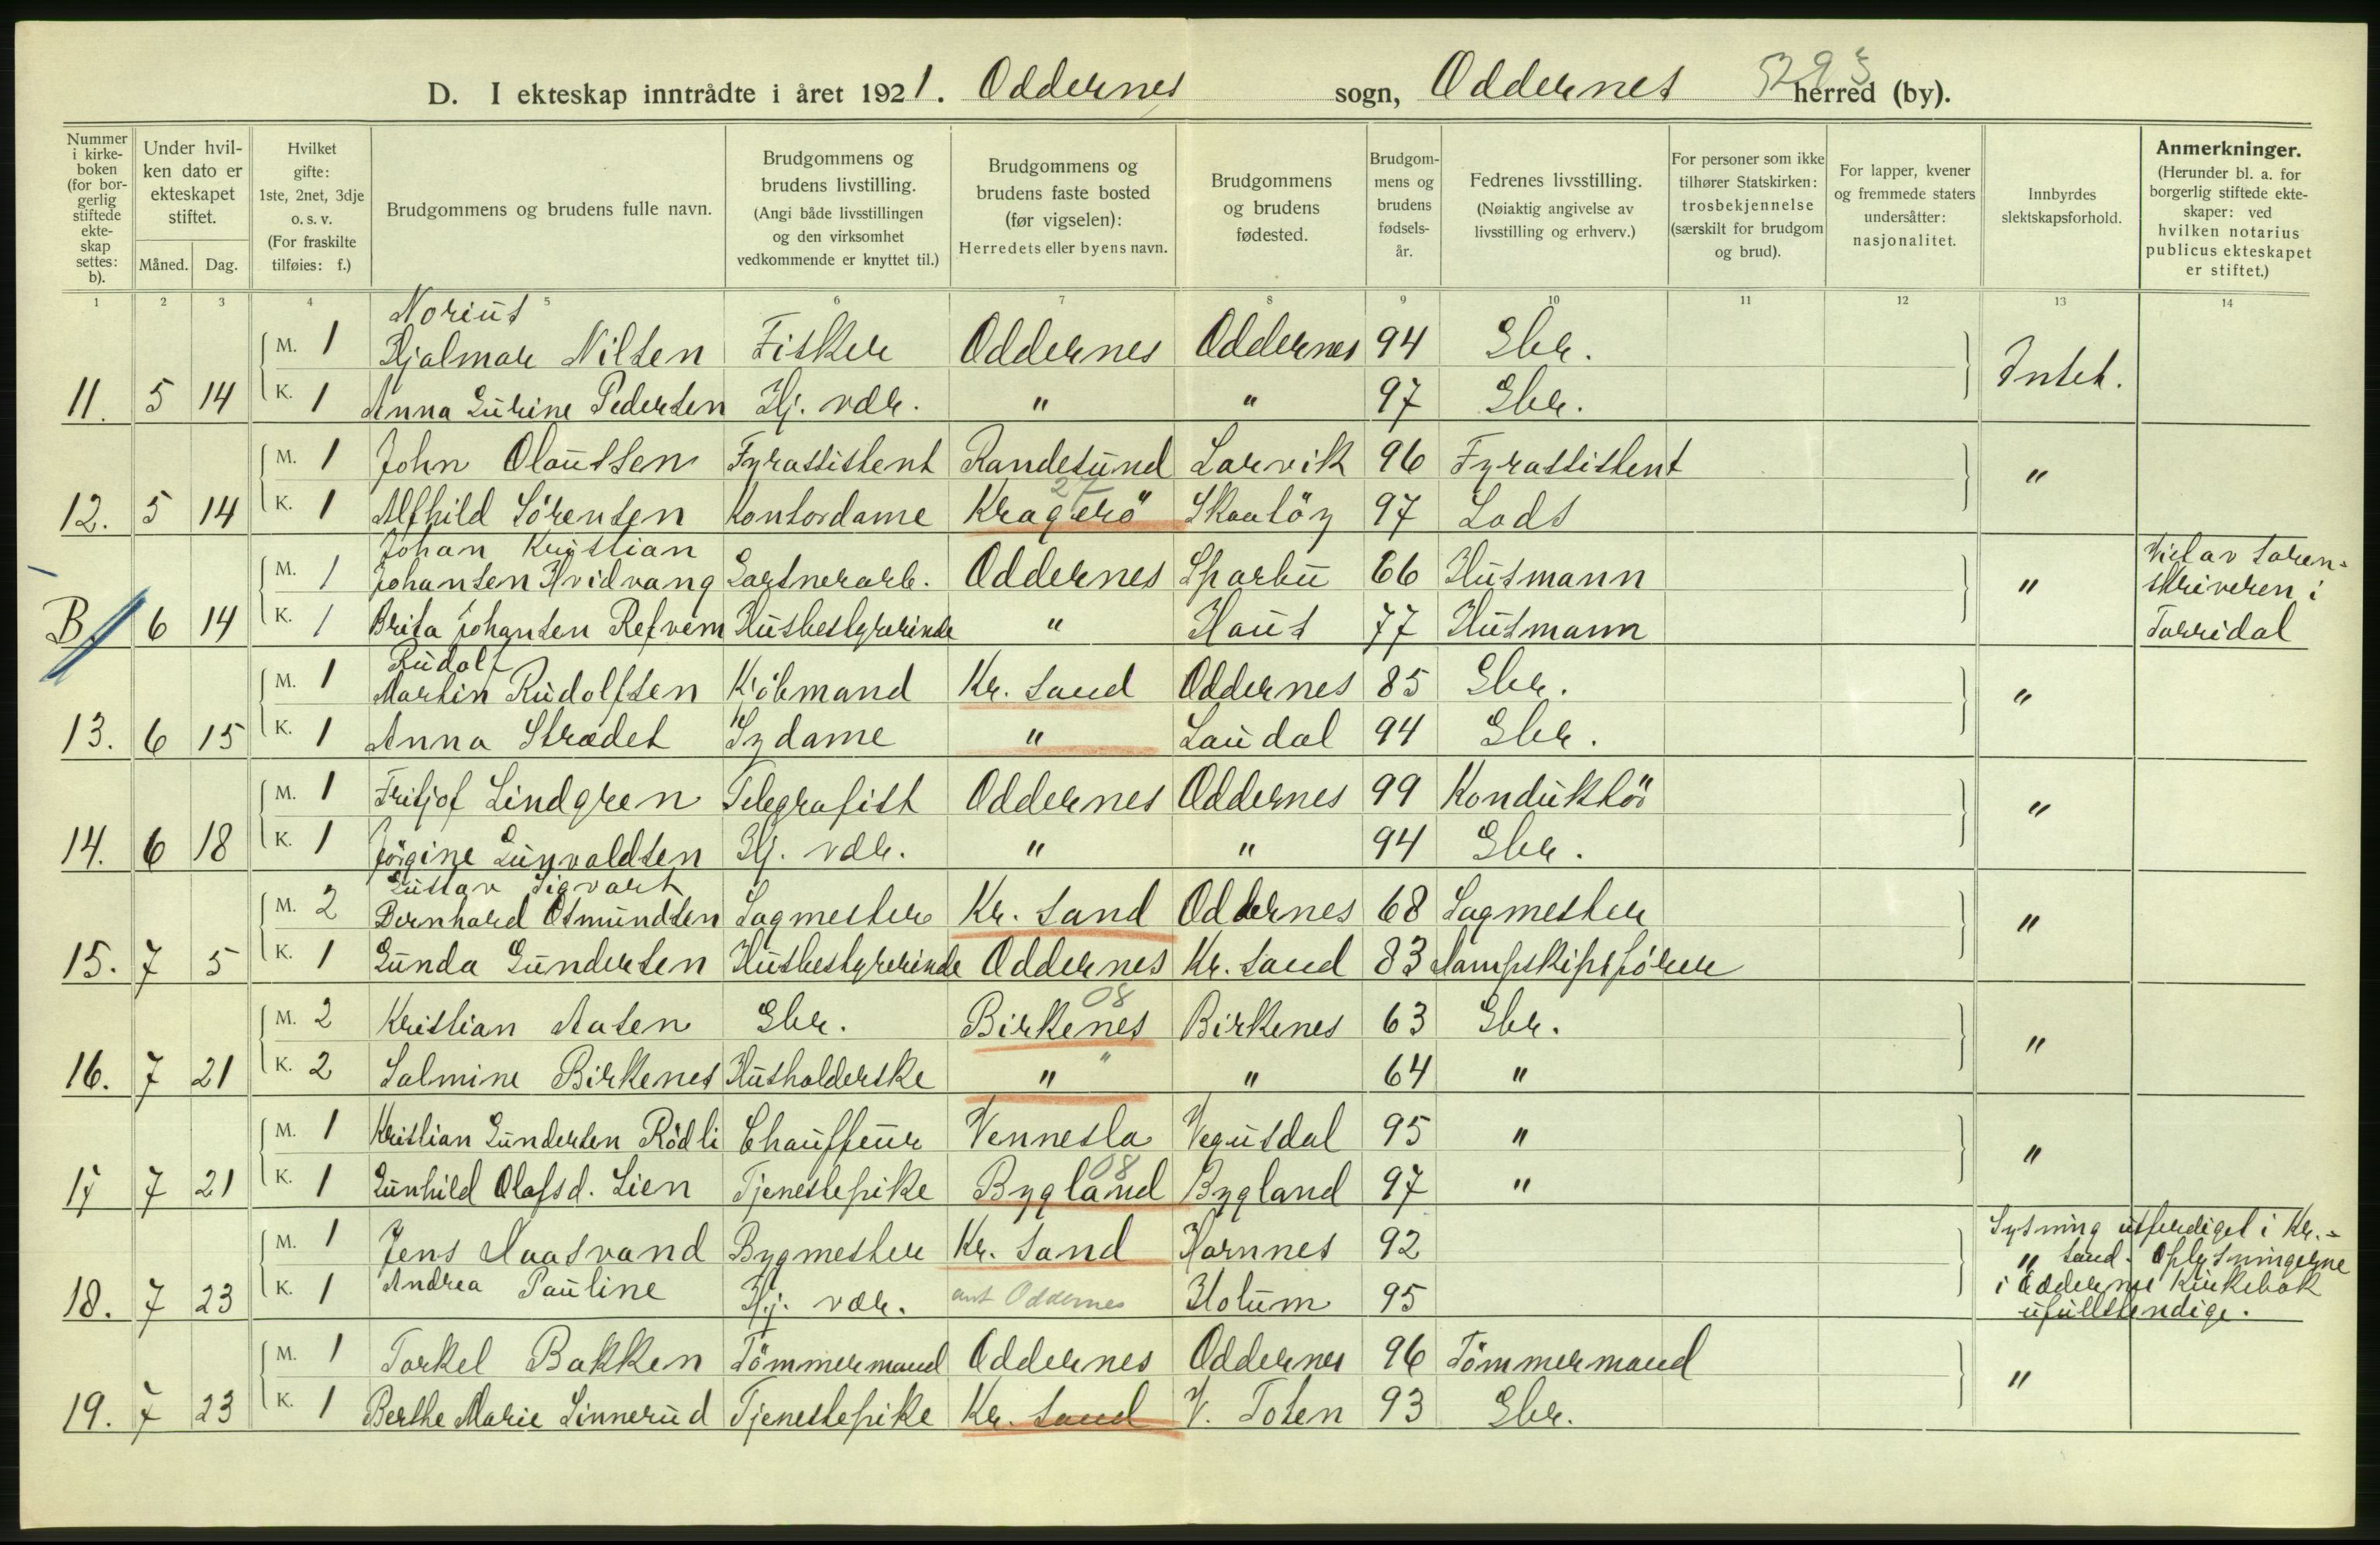 D. I ekteskap inntrådte i året 1921. Oddernes sogn, Oddernes herred (by).
Nummer i kirkeboken (for borgerlig stiftede ekteskap settes: b).
Under hvilken dato er ekteskapet stiftet.
Måned. Dag.
Hvilket gifte: 1ste, 2net, 3dje o. s. v. (For fraskilte tilføies: f.)
Brudgommens og brudens fulle navn.
Brudgommens og brudens livstilling. (Angi både livsstillingen og den virksomhet vedkommende er knyttet til.)
Brudgommens og brudens faste bosted (før vigselen): Herredets eller byens navn.
Brudgommens og brudens fødested.
Brudgommens og brudens fødselsår.
Fedrenes livsstilling. (Nøiaktig angivelse av livsstilling og erhverv.)
For personer som ikke tilhører Statskirken: trosbekjennelse (særskilt for brudgom og brud).
For lapper, kvener og fremmede staters undersåtter: nasjonalitet.
Innbyrdes slektskapsforhold.
Anmerkninger. (Herunder bl. a. for borgerlig stiftede ekteskaper: ved hvilken notarius publicus ekteskapet er stiftet.)
1 2 3 4 5 6 7 8 9 10 11 12 13 14
Norius
M. 1 Hjalmar Nilsen Fisker Oddernes Oddernes 94 Gbr.
Intet.
11. 5 14 K. 1 Anna Gurine Pedersen Hj. vær. " " 97 Gbr.
M. 1 John Olaussen Fyrassistent Randesund Larvik 96 Fyrassistent
"
12. 5 14 K. 1 Alfhild Sörensen Kontordame Kragerö Skaatöy 97 Lods
Johan Kristian
M. 1 Johansen Hvidvang Gartnerarb. Oddernes Sparbu 66 Husmann
" Viet av sorenskriveren i Torridal
B. 6 14 K. 1 Brita Johansen Refvem Husbestyrerinde " Haus 77 Husmann
Rudolf
M. 1 Martin Rudolfsen Kjöbmand Kr. sand Oddernes 85 Gbr.
"
13. 6 15 K. 1 Anna Strædet Sydame " Laudal 94 Gbr.
M. 1 Fritjof Lindgren Telegrafist Oddernes Oddernes 99 Konduktör
"
14. 6 18 K. 1 Jörgine Gunvaldsen Hj. vær. " " 94 Gbr.
Gustav Sigvart
M. 2 Bernhard Osmundsen Sagmester Kr. sand Oddernes 68 Sagmester
"
15. 7 5 K. 1 Gunda Gundersen Husbestyrerinde Oddernes Kr. sand 83 Dampskipsfører
08
M. 2 Kristian Aasen Gbr. Birkenes Birkenes 63 Gbr.
"
16. 7 21 K. 2 Salmine Birkenes Husholderske " " 64 "
M. 1 Kristian Gundersen Rödli Chauffeur Vennesla Vegusdal 95 "
"
08
17 7 21 K. 1 Gunhild Olafsd. Lien Tjenestepike Bygland Bygland 97 "
M. 1 Jens Aaasvand Bygmester Kr. sand Hornnes 92
Lysning utferdiget i Kr.-
" sand. Oplysningerne
i Oddernes kirkebok
ufullstendige.
18. 7 23 K. 1 Andrea Pauline Hj. vær. ant Oddernes Holum 95
M. 1 Torkel Bakken Tömmermand Oddernes Oddernes 96 Tömmermand
"
19. 7 23 K. 1 Berthe Marie Linnerud Tjenestepike Kr. sand V. Toten 93 Gbr.